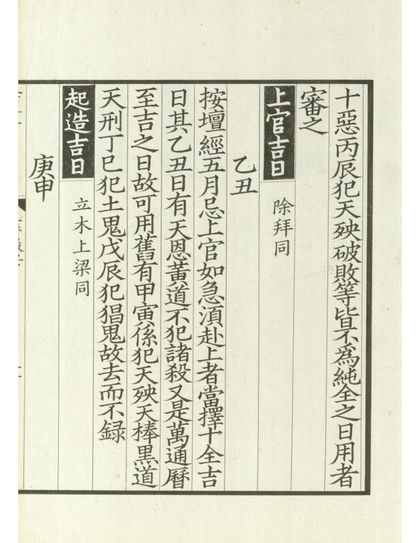 十惡丙辰犯天殃破敗等皆不為純全之日用者
審之
上官吉日 除拜同
乙丑
按壇經五月忌上官如急湏赴上者當擇十全吉
日其乙丑日有天恩黃道不犯諸殺又是萬通曆
至吉之日故可用舊有甲寅係犯天殃天棒黑道
天刑丁巳犯土鬼戊辰犯猖鬼故去而不録
起造吉日 立木上梁同
庚申